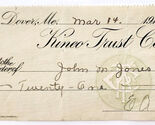 Dover, Me. Mar 14. 19
Kineo Trust Co
to the
order of John M Jones
Twenty-One